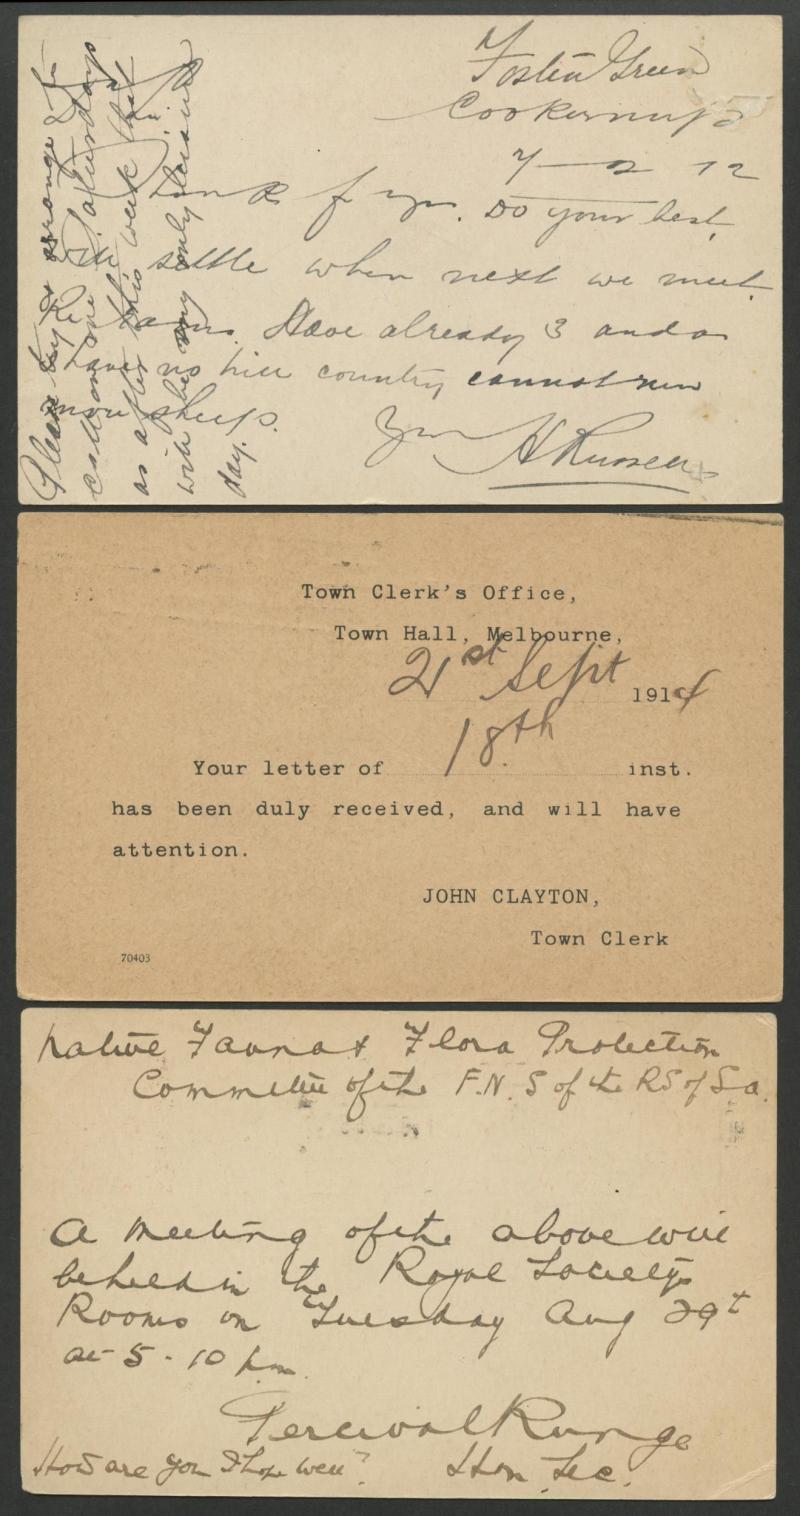 Foster Green
Cookernup
7 - 2 12
Thanks f yrs. Do your best,
will settle when next we meet
Re rams. Have already 3 and as
have no hill country cannot run
more sheep.
Yrs H Russell
Please try & arrange to
call on me Saturday
as after this week that
will be my only leisure
day.
Town Clerk's Office,
Town Hall, Melbourne,
21st Sept 1914
Your letter of 18th inst.
has been duly received, and will have
attention.
JOHN CLAYTON,
Town Clerk
70403
Native Fauna & Flora Protection
Committee of the F.N. S of the RS of S.a.
A meeting of the above will
be held in the Royal Society's
Rooms on Tuesday Aug 29t
at 5-10 p.m.
Percival Runge
How are you I hope well? Hon. Sec.